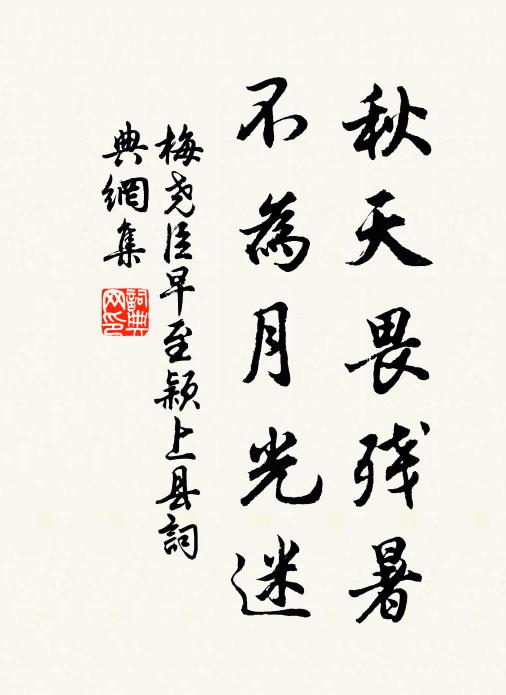 秋天畏残暑
不為月光迷
梅尧臣早至颍上县詞
典網集
詞典网印